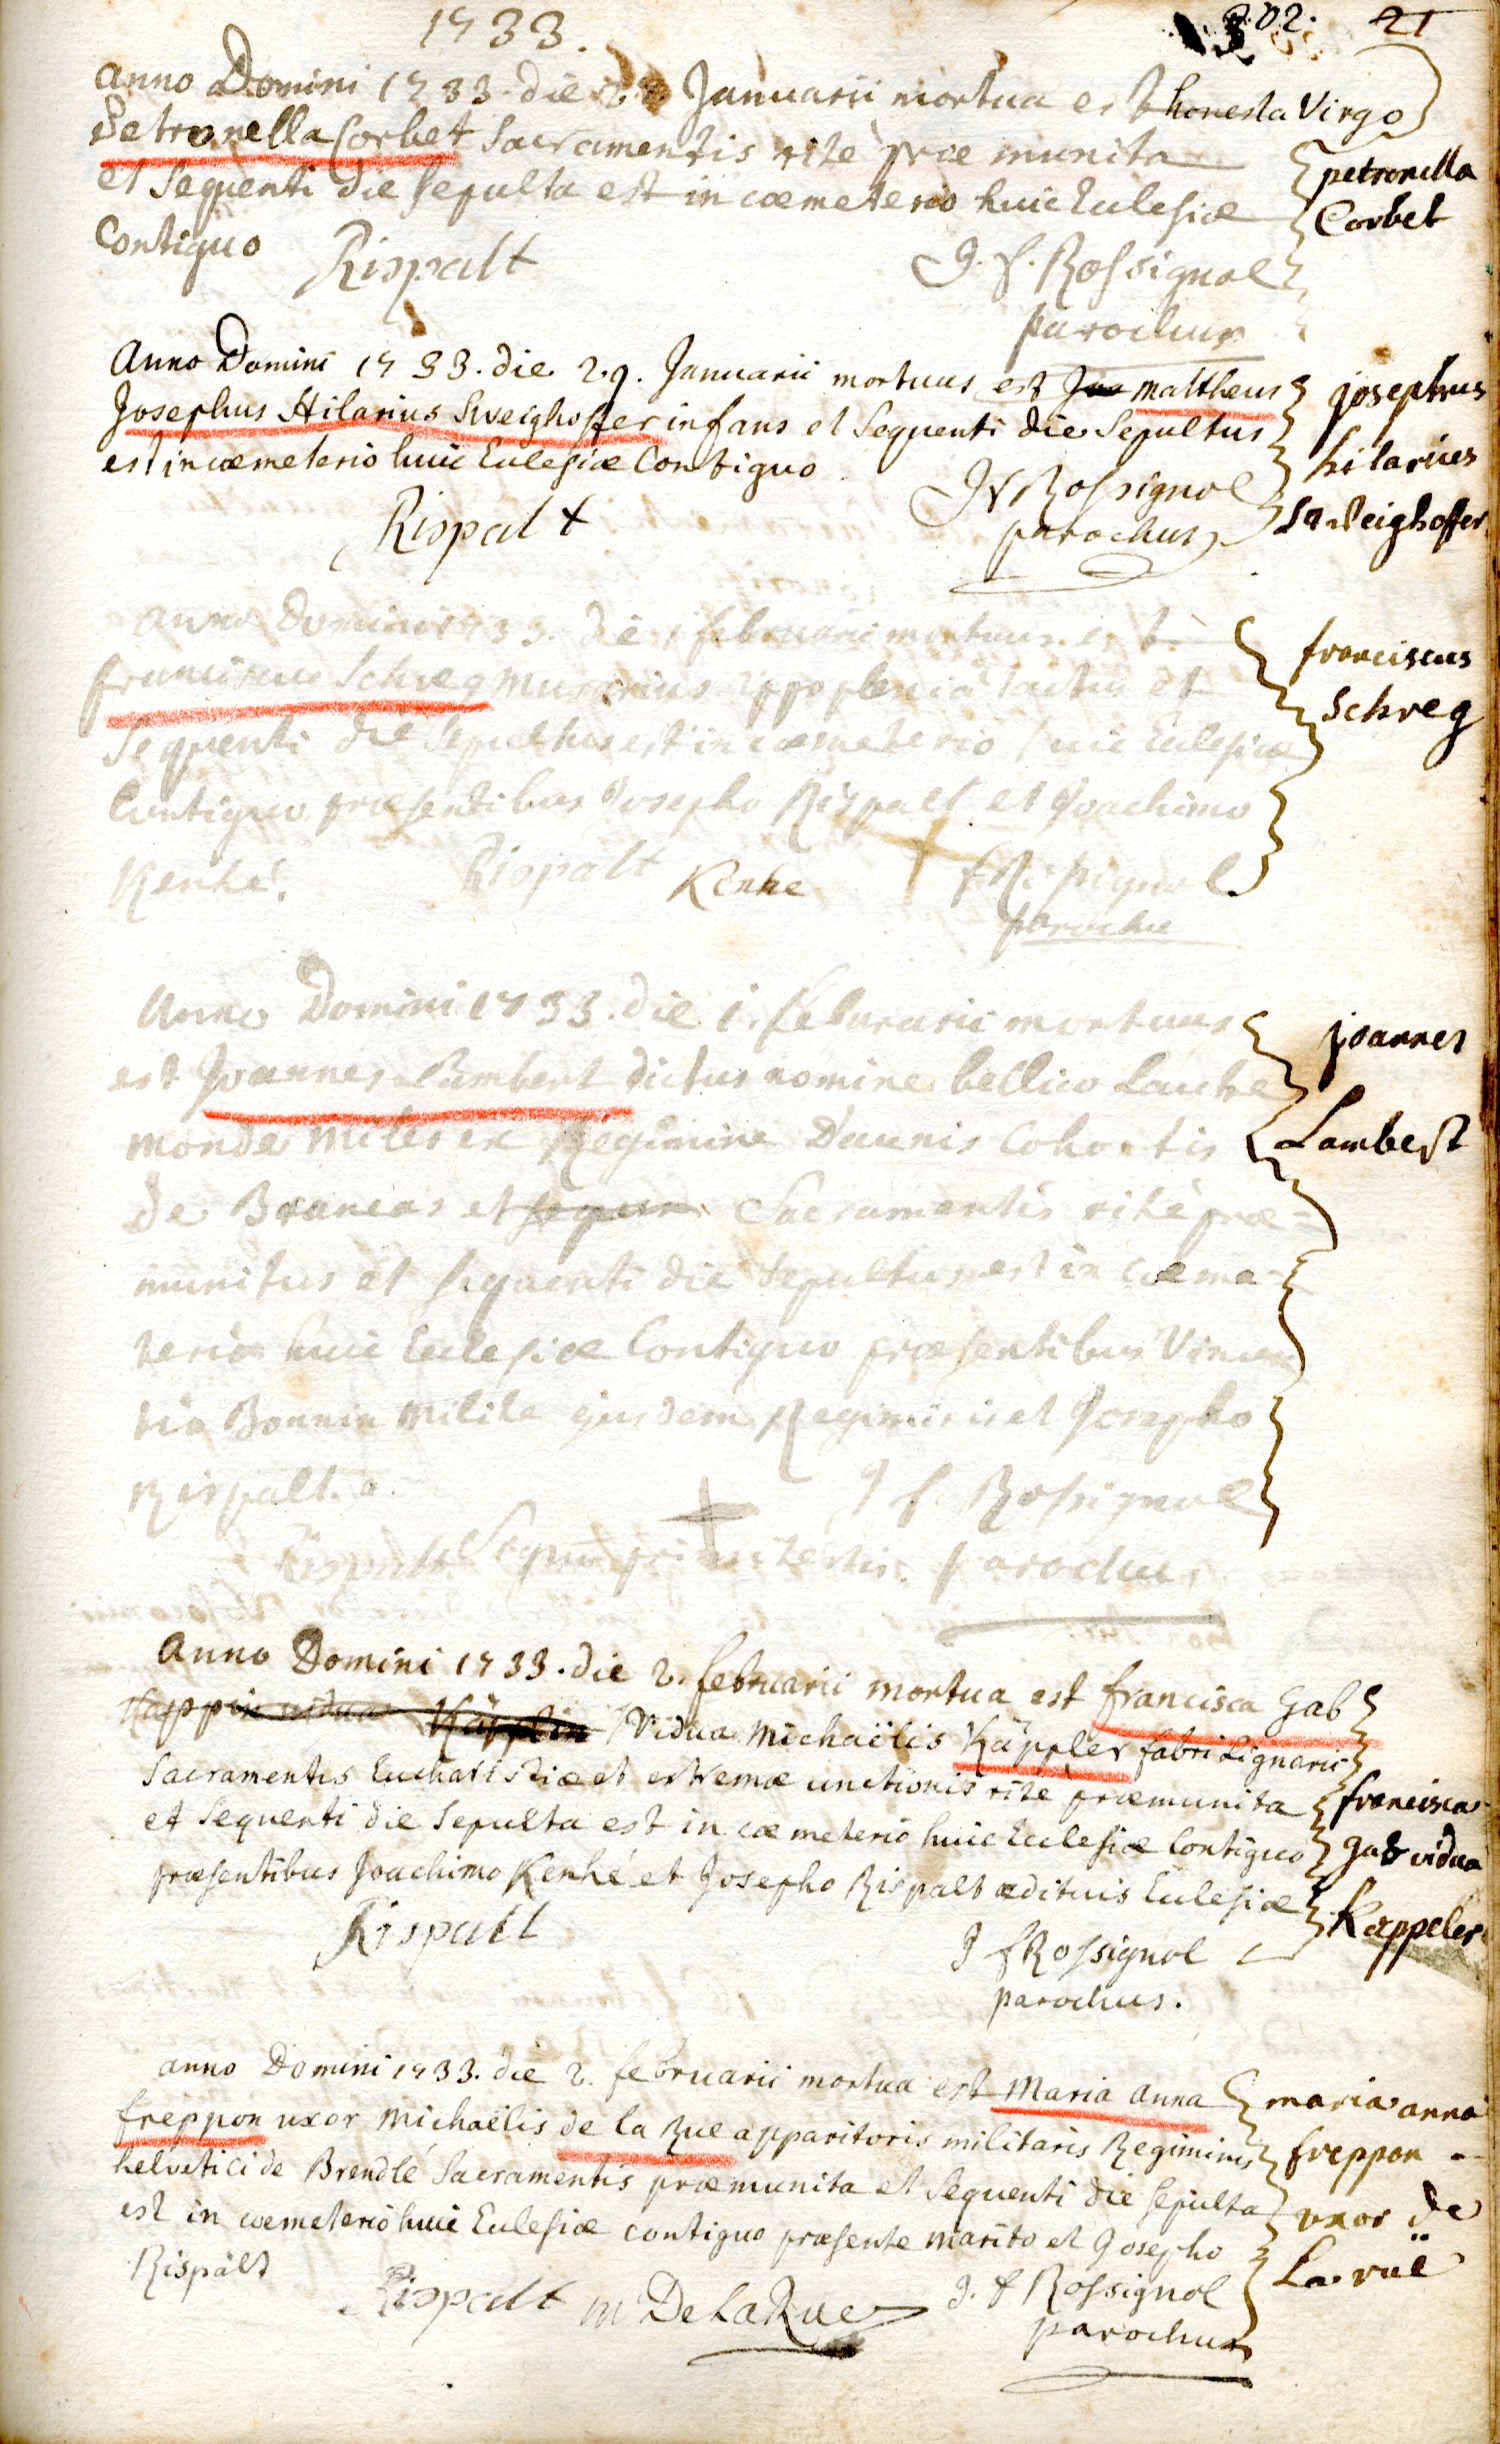 1733.
302. 21
Anno Domini 1733. die 28 Januarii mortua est honesta Virgo
Petronella Corbet Sacramentis ritè præ munita
et Sequenti die Sepulta est in cœmeterio huic Ecclesiæ
Contiguo Rispalt J. f. Rossignol
parochus
petronella
Corbet
Anno Domini 1733. die 29. Januarii mortuus est Mattheus
Josephus Hilarius Sweighoffer infans et Sequenti die Sepultus
est in cœmeterio huic Ecclesiæ Contiguo
Rispalt J f Rossignol
parochus
josephus
hilarius
Sweighoffer
Anno Domini 1733. die 1 februarii mortuus est
franciscus Schreg murarius appoplexiâ tactus et
Sequenti die Sepultus est in cœmeterio huic Ecclesiæ
Contiguo præsentibus Josepho Rispalt et Joachimo
Kenhé. Rispalt Kenhe f Rossignol
parochus
franciscus
Schreg
Anno Domini 1733. die 1. februarii mortuus
est Joannes Lambert dictus nomine bellico
monde Miles ex Regimine Daunis Cohortis
de Brancas et Sacramentis ritè præ=
munitus et sequenti die Sepultus est in cœme-
terio huic Ecclesiæ Contiguo præsentibus Vincen
tio Bonnin Milite ejusdem Regiminis et Josepho
Rispalt. J f. Rossignol
Rispalt parochus
joannes
Lambert
Anno Domini 1733. die 2. februarii mortua est francisca Gab
Vidua Michaëlis Käppler fabri Lignarii
Sacramentis Eucharistiæ et extremæ unctionis rite præmunita
et Sequenti die Sepulta est in cœmeterio huic Ecclesiæ Contiguo
præsentibus Joachimo Kenhé et Josepho Rispalt ædituis Ecclesiæ
Rispalt J f Rossignol
parochus.
francisca
gab vidua
Kappeler
anno Domini 1733. die 2. februarii mortua est Maria Anna
freppon uxor Michaëlis de la Rue apparitoris militaris Regiminis
helvetici de Brendlé Sacramentis præmunita et Sequenti die Sepulta
est in cœmeterio huic Ecclesiæ contiguo præsente marito et Josepho
Rispalt Rispalt M De La Rue J. f Rossignol
parochus
maria anna
freppon
uxor de
La ruë